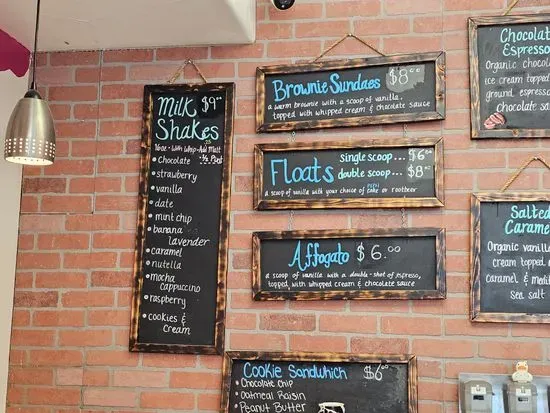 Milk $9.00
Shakes
• chocolate
• strawberry
• vanilla
• date
• mint chip
• banana
lavender
• caramel
• nutella
• mocha
cappuccino
• raspberry
• cookies &
cream
Brownie Sundaes $8.00
a warm brownie with a scoop of vanilla,
topped with whipped cream & chocolate sauce
Floats single scoop... $6.00
double scoop... $8.00
a scoop of vanilla with your choice of or rootbeer
Affogato $6.00
a scoop of vanilla with a double-shot of espresso,
topped with whipped cream & chocolate sauce
Cookie Sandwhich $6.00
• Chocolate Chip
• Oatmeal Raisin
• Peanut Butter
Chocolate
Espresso
Organic chocola
ice cream topped
ground espress
chocolate sa
Salted
Carame
Organic vanill
cream topped
caramel &
sea salt